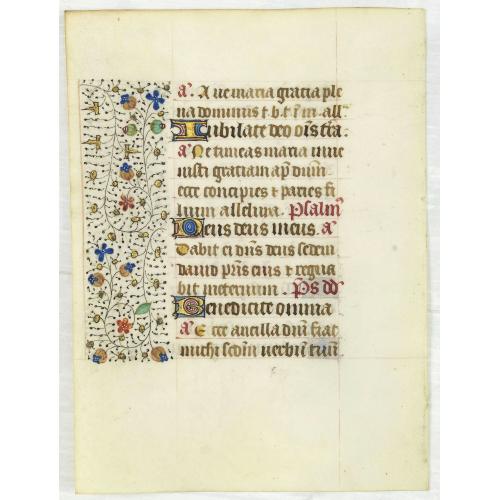 a. Ave maria gracia ple
na dominus t. b. t. i m. all.
Iubilate deo oīs t̄ra.
a. Ne timeas maria inue
nisti graciam ap̄ dūm
ecce concipies et paries fi
lium alleluya. Psalm̄
Deus deus meus. a.
Dabit ei dūs deus sedem
dauid pr̄is eius et regna
bit ineternum. Ps dd̄
Benedicite omnia
a. Ecce ancilla dūi fiat
michi sedm̄ uerbū tuū.